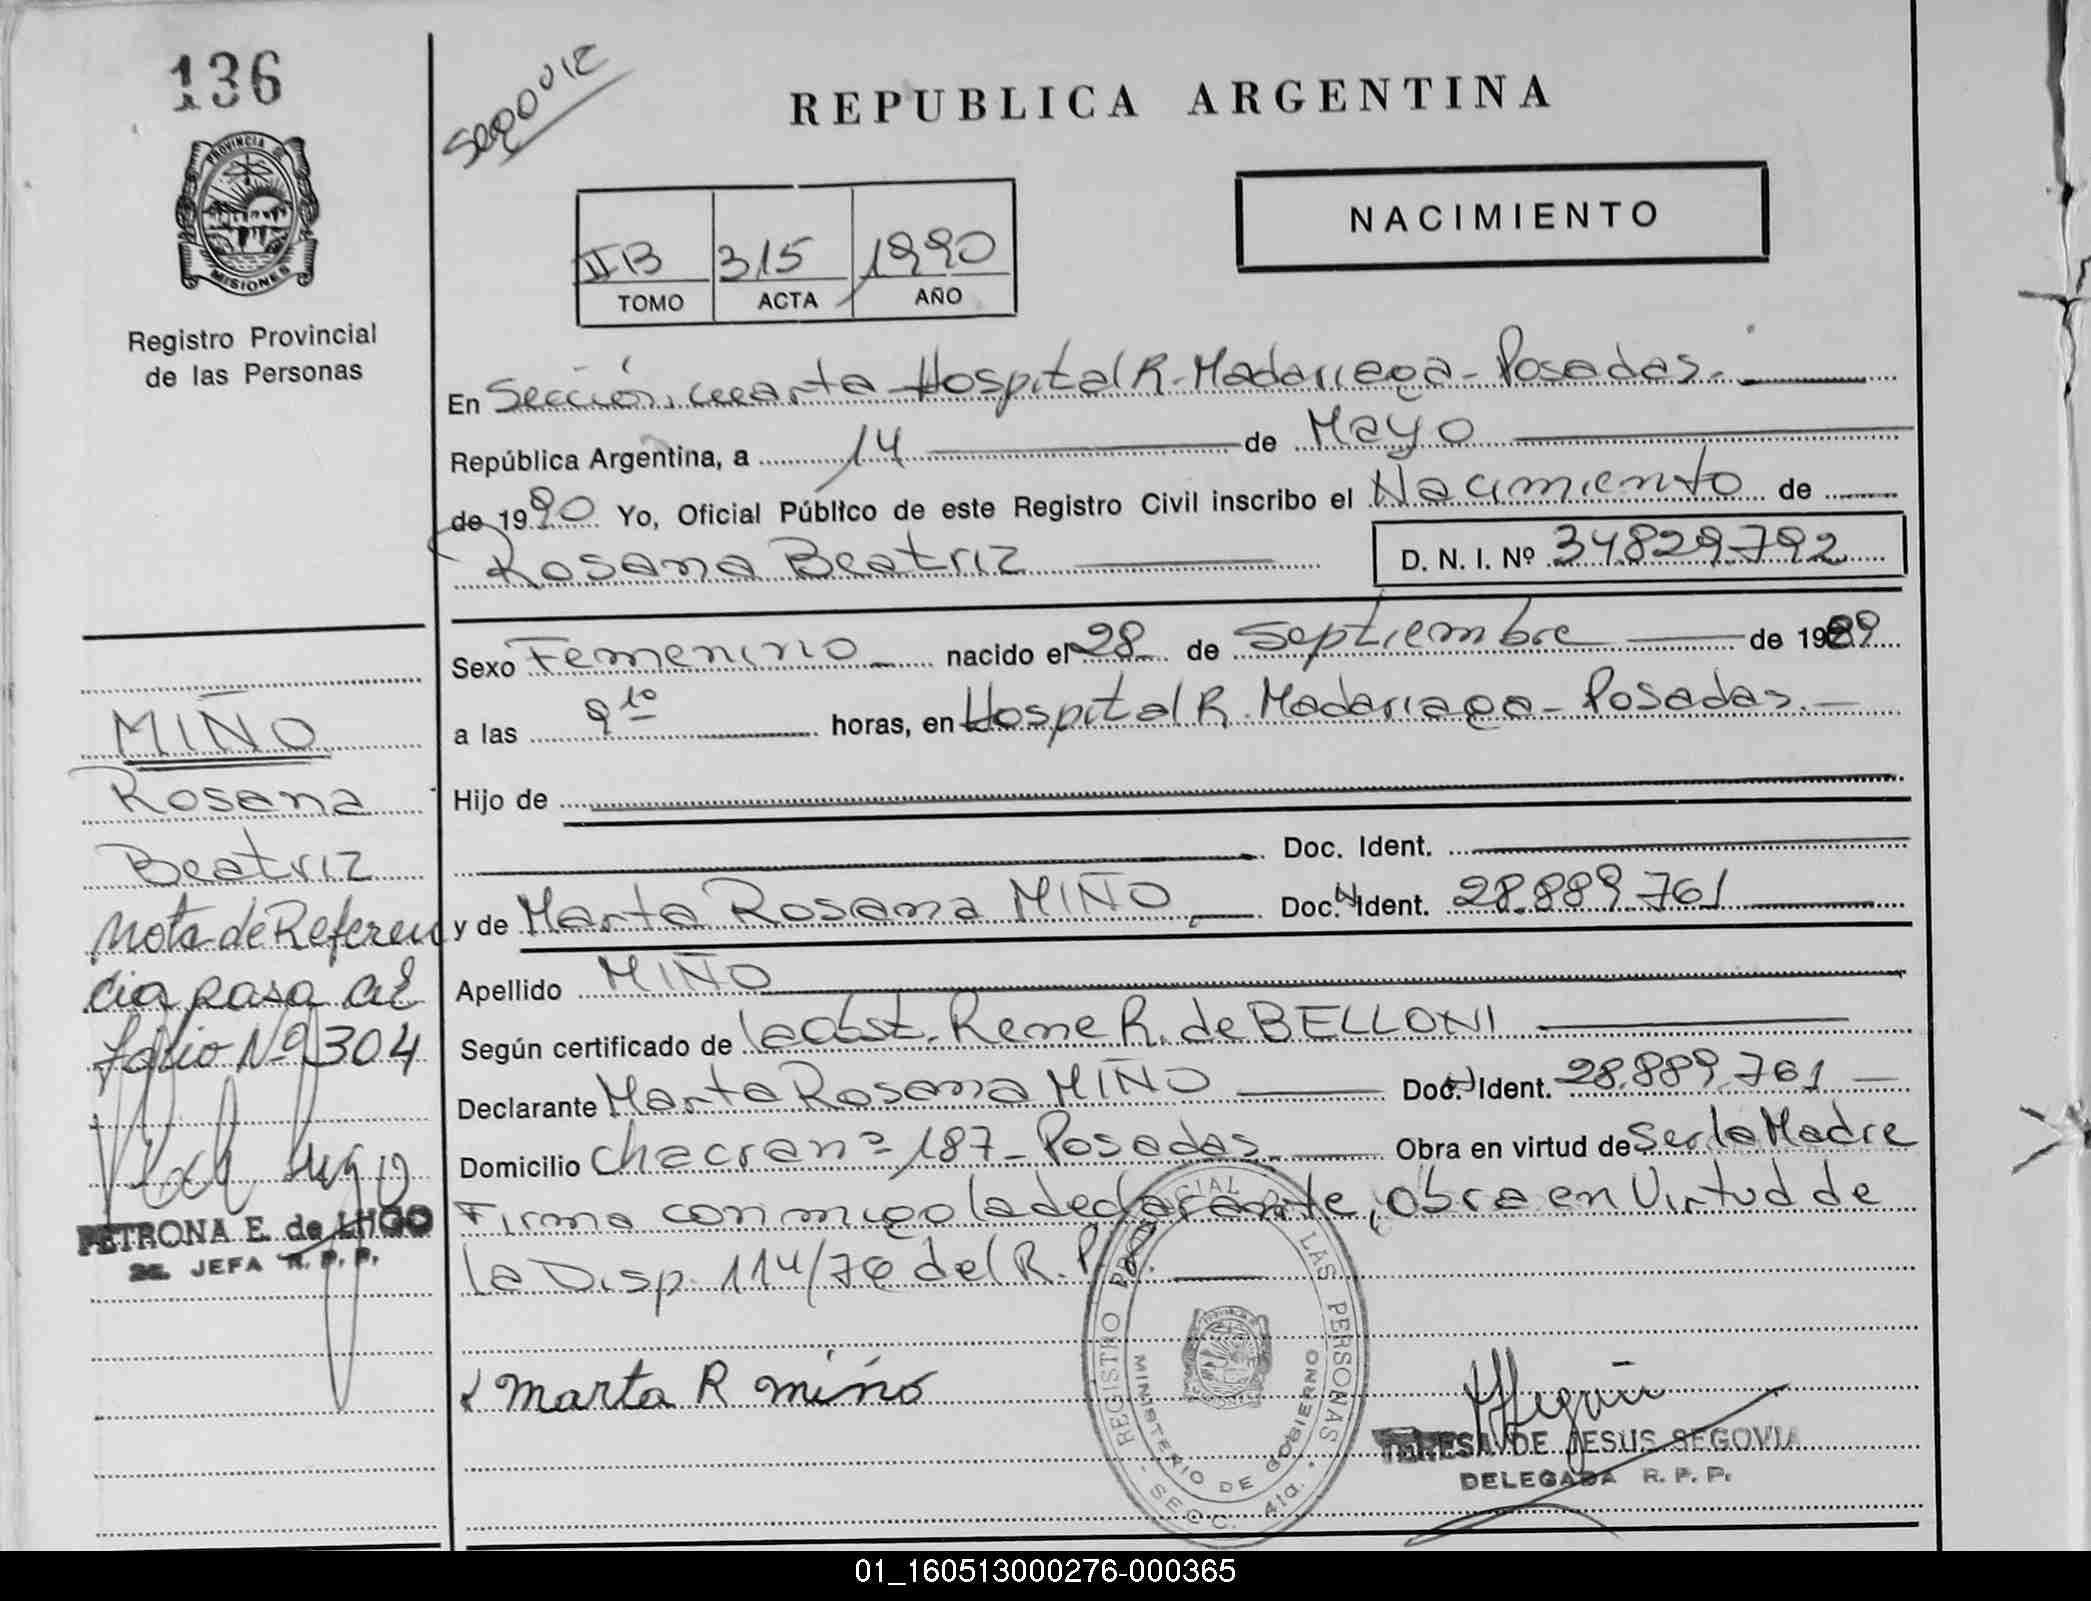 136
Segovia
REPUBLICA ARGENTINA
PROVINCIA DE
MISIONES
Registro Provincial
de las Personas
II B 315 1990
TOMO ACTA AÑO
NACIMIENTO
En Sección cuarta Hospital R. Madariaga - Posadas.
República Argentina, a 14 de Mayo
de 1990 Yo, Oficial Público de este Registro Civil inscribo el Nacimiento de
Rosana Beatriz D. N. I. Nº 34.829.792
Sexo Femenino nacido el 28 de Septiembre de 1989
a las 9 10 horas, en Hospital R. Madariaga - Posadas.
Hijo de
Doc. Ident.
y de Marta Rosana MIÑO Doc. N Ident. 28.889.761
Apellido MIÑO
Según certificado de la Obst. Rene R. de BELLONI
Declarante Marta Rosana MIÑO Doc. N Ident. 28.889.761
Domicilio Chacra nº 187 - Posadas. Obra en virtud de Ser la Madre
Firma conmigo la declarante, obra en Virtud de
la Disp. 114/76 del R. P. P.
Marta R miño
TERESA DE JESUS SEGOVIA
DELEGADA R. P. P.
REGISTRO PROVINCIAL DE LAS PERSONAS
MINISTERIO DE GOBIERNO
SECC. 4ta.
MIÑO
Rosana
Beatriz
Nota de Referen
cia pasa al
folio Nº 304
PETRONA E. de LUGO
JEFA R. P. P.
01_160513000276-000365